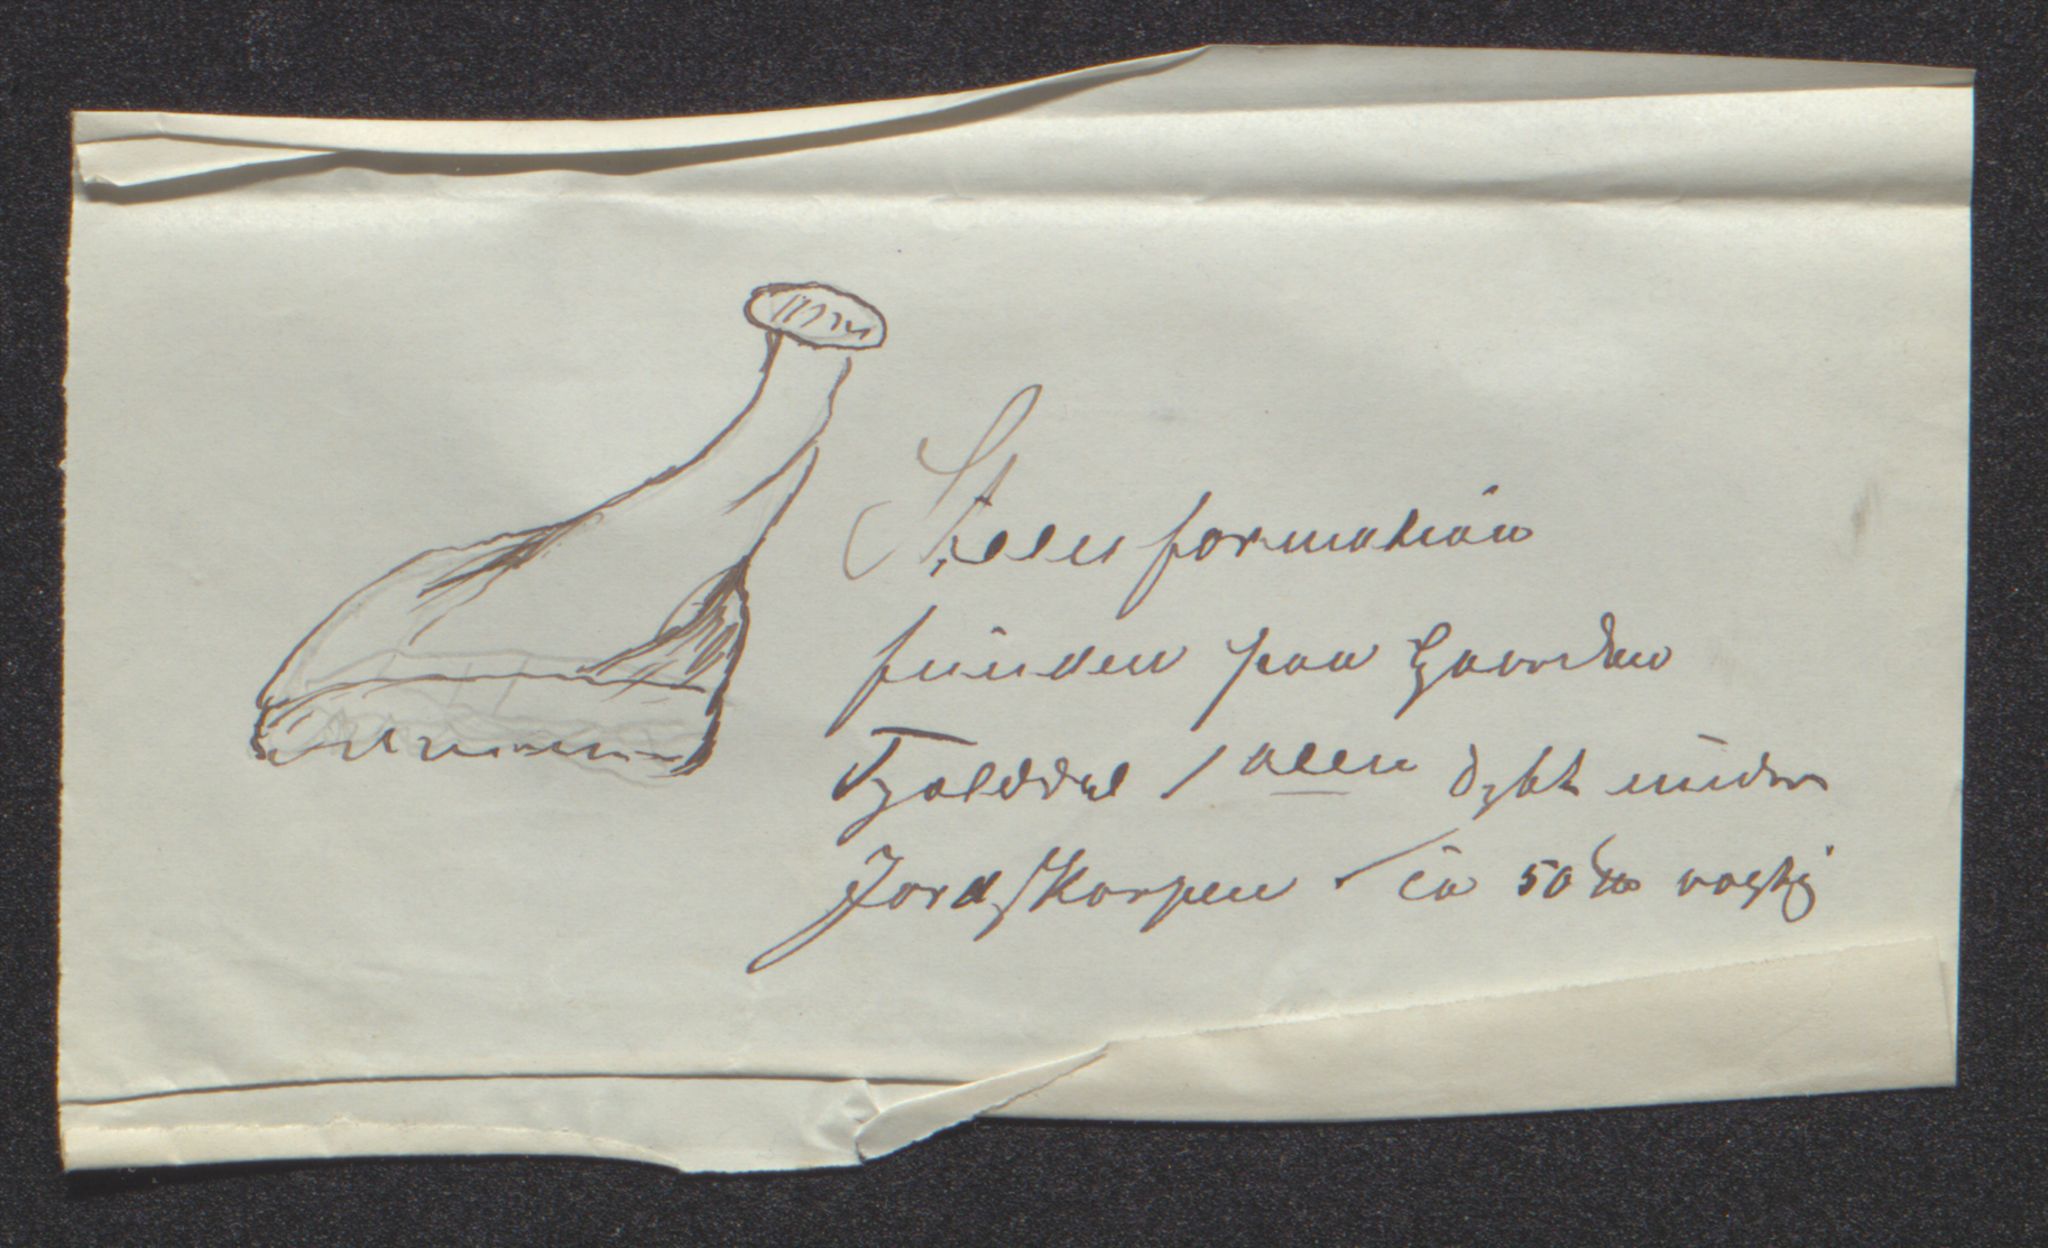 Steensformation
funden paa Gaarden
Tjolddal 1 Alen dybt under
Jordskorpen. ca 50 ℔ vægtig